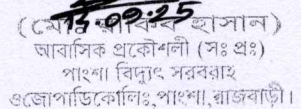 13.09.25
(মোঃ রাকিব হাসান)
আবাসিক প্রকৌশলী (সঃ প্রঃ)
পাংশা বিদ্যুৎ সরবরাহ
ওজোপাডিকোলিঃ,পাংশা,রাজবাড়ী।